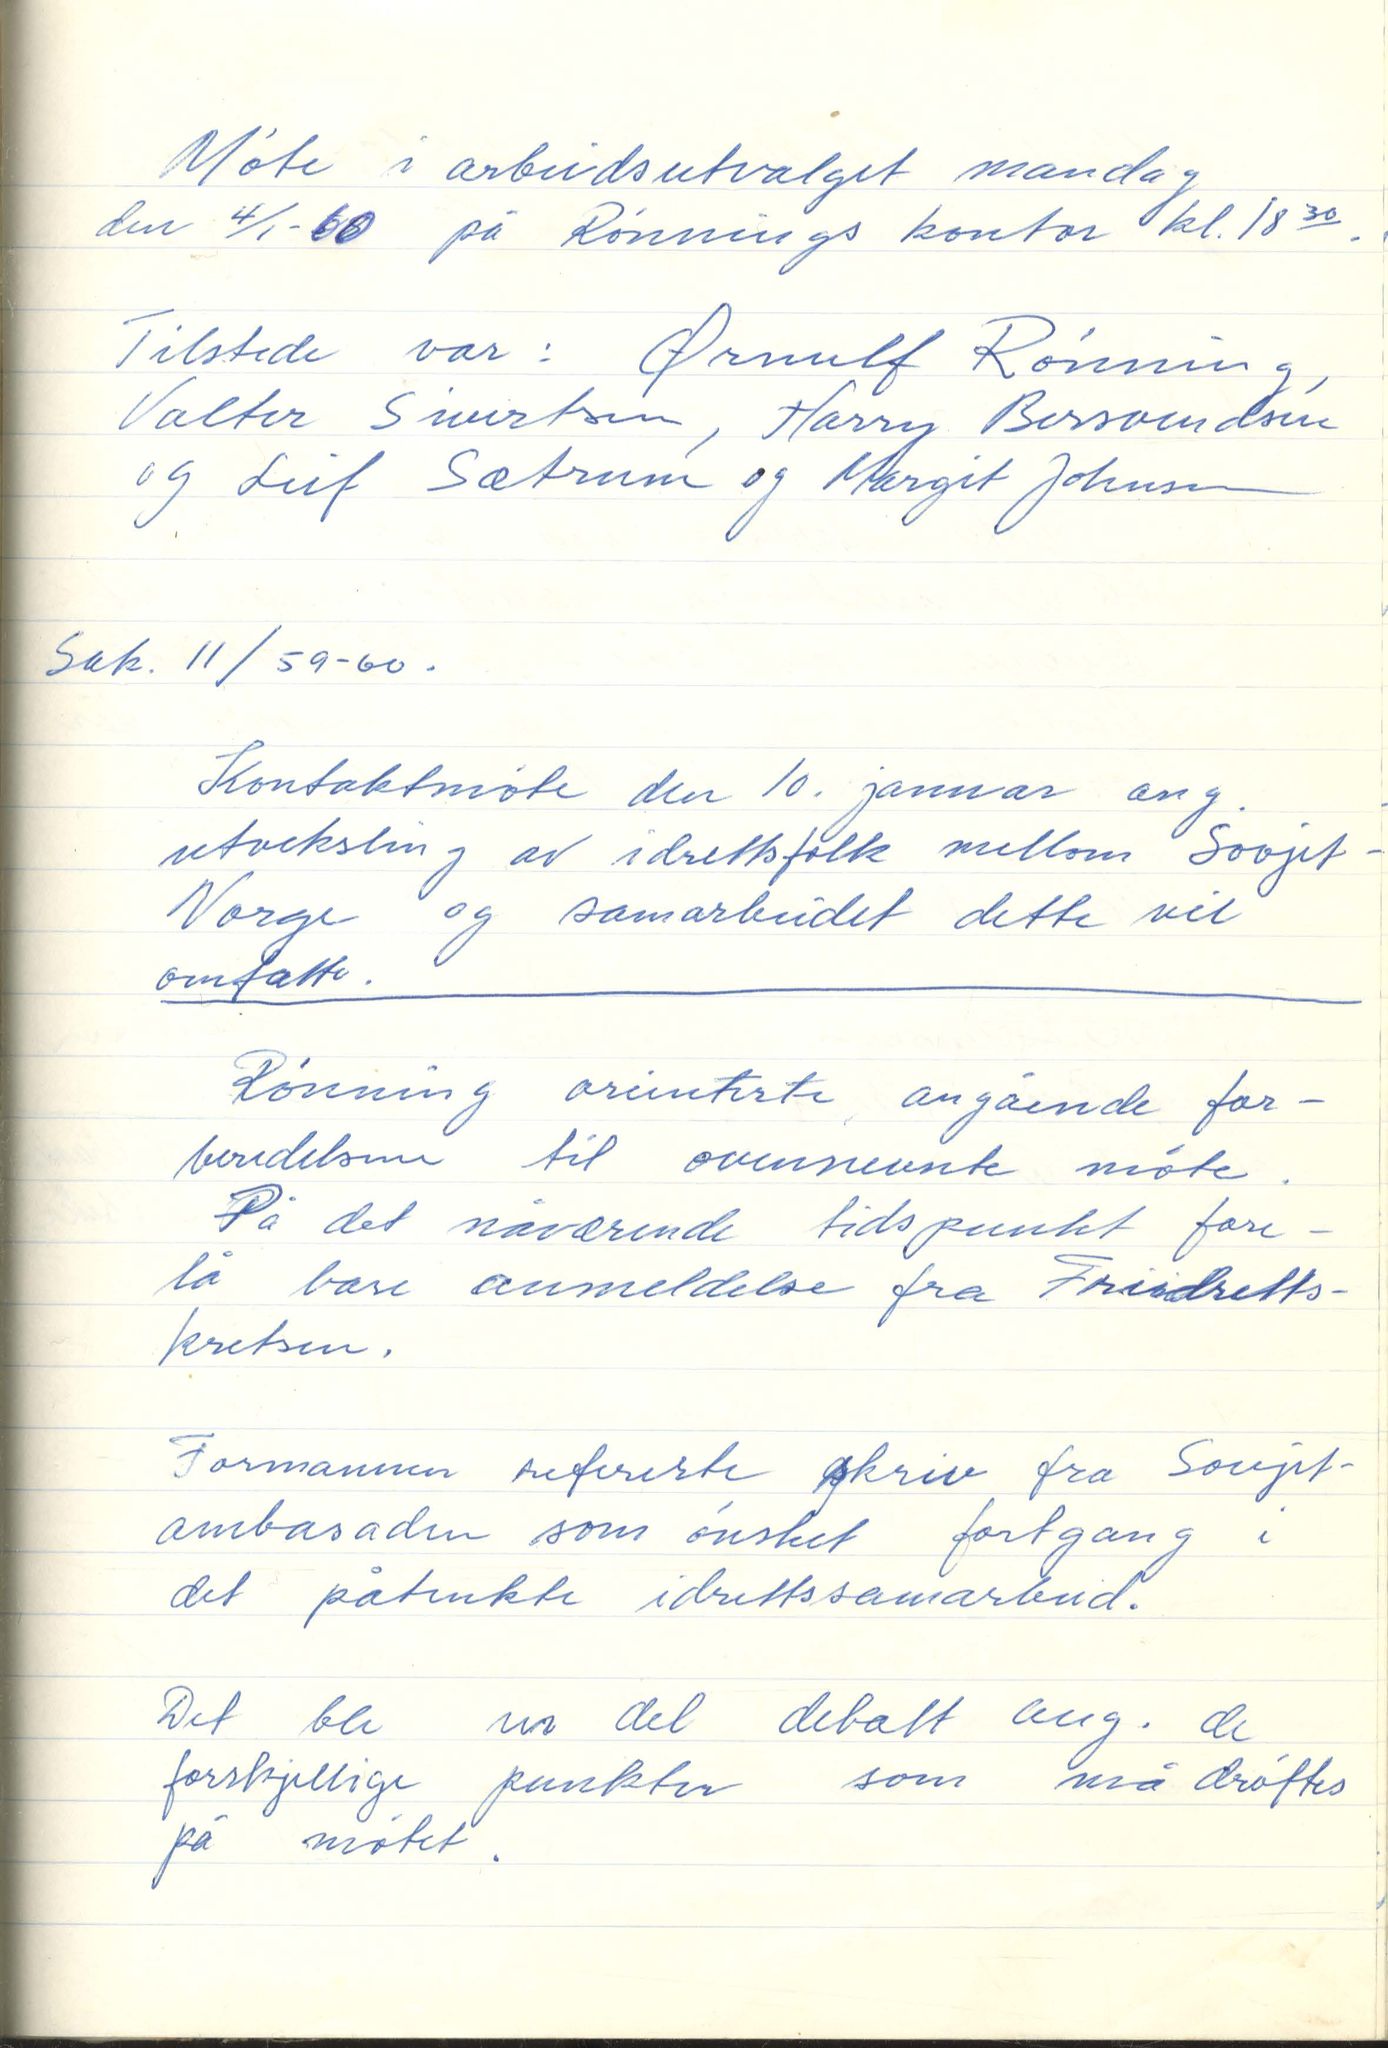 Møte i arbeidsutvalget mandag
den 4/1-60 på Rønnings kontor kl. 18 30.
Tilstede var: Ørnulf Rønning,
Valter Sivertsen, Harry Bersvendsen
og Leif Sætrum og Margit Johnsen
Sak. 11/59-60.
Kontaktmøte den 10. januar ang.
utveksling av idrettsfolk mellom Sovjet-
Norge og samarbeidet dette vil
omfatte.
Rønning orienterte angående for-
beredelsene til ovennevnte møte.
På det nåværende tidspunkt fore-
lå bare anmeldelse fra Friidretts-
kretsen.
Formannen refererte skriv fra Sovjet-
ambasaden som ønsket fortgang i
det påtenkte idrettssamarbeid.
Det ble en del debatt ang. de
forskjellige punkter som må drøftes
på møtet.